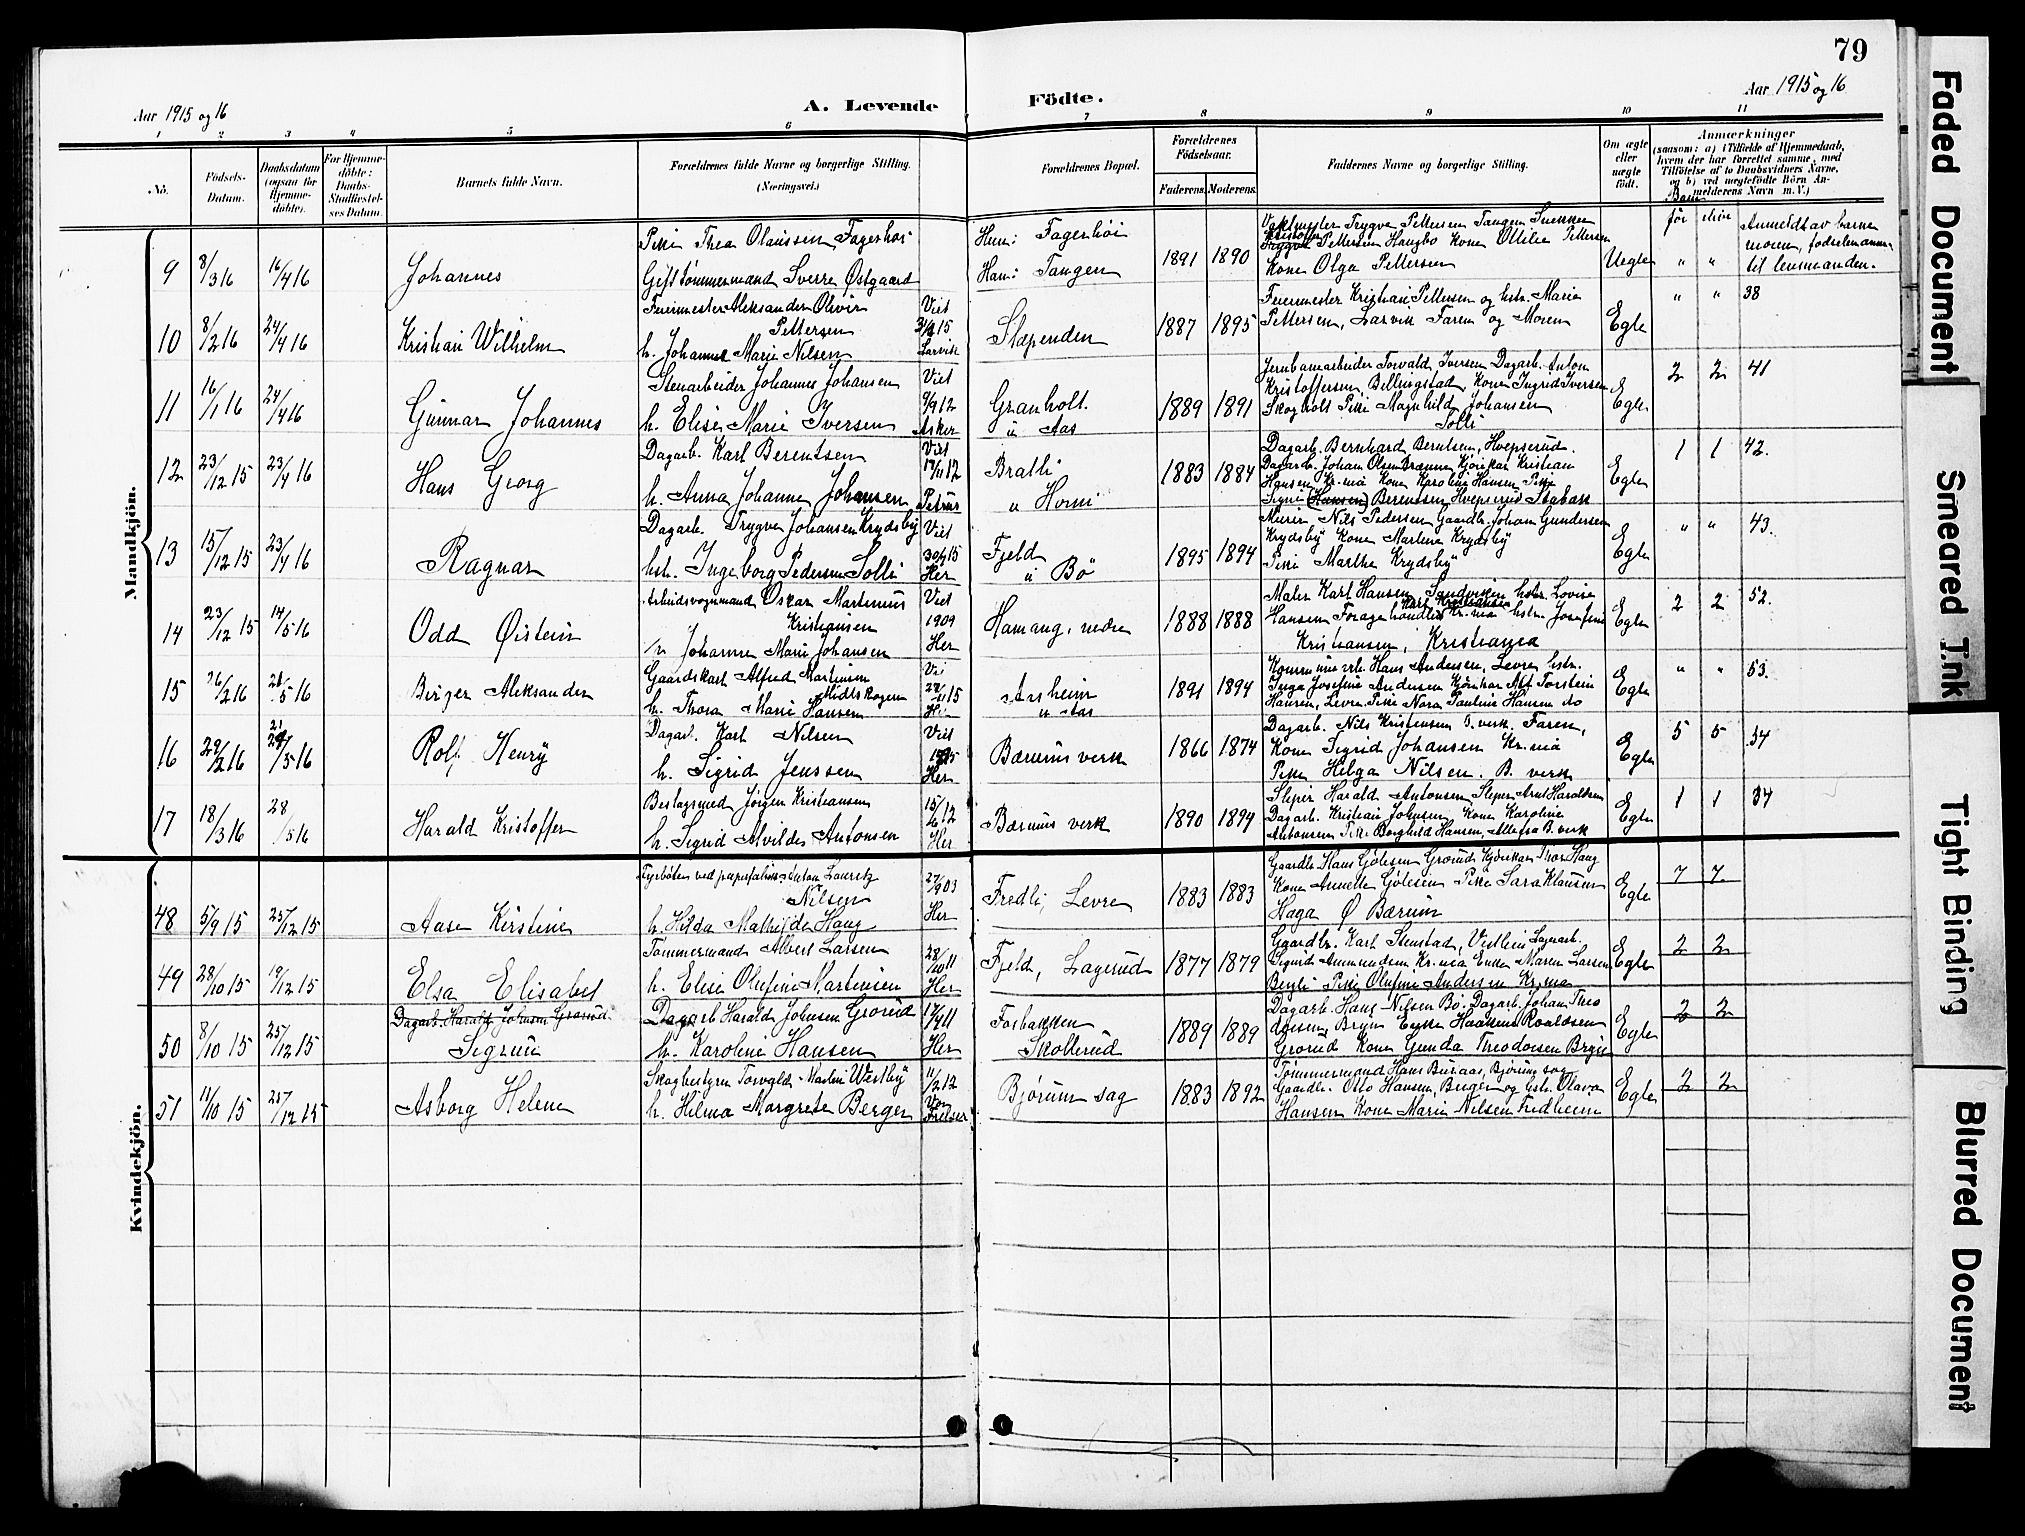 79
Aar 1915 og 16
A. Levende Födte.
Aar 1915 og 16
1 2 3 4 5 6 7 8 9 10 11
No.
Födsels-Datum.
Daabsdatum (ogsaa for Hjemme-döbte).
For Hjemme-döbte: Daabs-Stadfæstel-ses Datum.
Barnets fulde Navn.
Forældrenes fulde Navne og borgerlige Stilling.
(Næringsvei.)
Forældrenes Bopæl.
Forældrenes Födselsaar.
Faderens. Moderens.
Faddernes Navne og borgerlige Stilling.
Om ægte eller uægte födt.
Anmærkninger
(saasom: a) i Tilfælde af Hjemmedaab, hvem der har forrettet samme, med Tilföielse af to Daabsvidners Navne, og b) ved uægtefödte Börn Anmelderens Navn m. V.)
Mandkjön.
9 8/3 16 16/4 16 Johannes
Pike Thea Olaussen Fagerhöi
Gift tömmermand Sverre Østgaard
Hun: Fagerhöi
Ham: Tangen
1891 1890
Vaktmester Trygve Pettersen Tangen
Pettersen Haugbo Kone Ottilie Pettersen
Kone Olga Pettersen
Uegte " "
Anmeldt av barne
moren, födselsanm.
til lensmanden.
10 8/2 16 24/4 16 Kristian Wilhelm
Feiermester Aleksander Olivir
Pettersen
h. Johanne Marie Nilsen
Viet
Larvik
Slæpenden 1887 1895
Feiermester Kristian Pettersen og hstr. Marie
Pettersen, Larvik Faren og Moren
Egte " " 38
11 16/1 16 24/4 16 Gunnar Johannes
Stenarbeider Johannes Johansen
h. Elise Marie Iversen
Viet
9/9 12
Asker
Granholt.
u Aas
1889 1891
Jernbanearbeider Torvald Iversen Dagarb. Anton
Kristoffersen, Billingstad, Kone Ingrid Iversen
Skogholt Pike Magnhild Johansen
Solli
Egte 2 2 41
12 23/12 15 23/4 16 Hans Georg
Dagarb. Karl Berentsen
h. Anna Johanne Johansen
Viet
17/11 12
Petrus
Bratli
u Horni
1883 1884
Dagarb. Bernhard Berntsen, Hvepserud.
Dagarb. Johan Olsen Brænne Kjörekar Kristian
Hansen Kr.nia Kone Karoline Hansen Pike
Signe (Hansen) Berentsen Hvepserud Stabæk
Egte 1 1 42.
13 15/12 15 23/4 16 Ragnar
Dagarb. Trygve Johansen Krydsby
hst. Ingeborg Pedersen Solli
Viet
30/9 15
Her
Fjeld
u Bö
1895 1894
Murer Nils Pedersen Gaardbr. Johan Gundersen
Krydsby Kone Martine Krydsby
Pike Marthe Krydsby
Egte " " 43.
14 23/12 15 14/5 16 Odd Øistein
Arbeidsvognmand Oskar Martinius
Kristiansen
h. Johanne Marie Johansen
Viet
1909
Her
Hamang, nedre 1888 1888
Maler Karl Hansen Sandviken hstr. Lovise
Karl Kristiansen
Hansen Foragehandler Kr.nia hstr. Josefine
Kristiansen, Kristiania
Egte 2 2 52.
15 26/2 16 28/5 16 Birger Aleksander
Gaardskarl Alfred Martinsen
Midtskogen
h. Thora Marie Hansen
Aasheim
u Aas
1891 1894
Hans Andersen, Levre hstr.
Inga Josefine Andersen Kjörekar Alf Torstein
Hansen, Levre Pike Nora Pauline Hansen do
Egte " " 53.
16 29/2 16 /5 16 Rolf Henry
Dagarb. Karl Nilsen
h. Sigrid Jenssen
Viet
Her
Bærums verk 1866 1874
Dagarb. Nils Kristensen B. verk, Faren,
Kone Sigrid Johansen Kr.nia
Pike Helga Nilsen. B. verk
Egte 5 5 34
17 18/3 16 28/5 16 Harald Kristoffer
Beslagsmed Jörgen Kristiansen
h. Sigrid Alvilde Antonsen
15/6 12
Her
Bærums verk 1890 1894
Sliper Harald Antonsen, Sliper Arnt Haraldsen
Dagarb. Kristian Johnsen, Kone Karoline
Antonsen Pike Borghild Hansen, Alle fra B. verk
Egte 1 1 34
Kvindekjön.
48 5/9 15 25/12 15 Aase Kirstine
Fyrböter ved papirfabrik Anton Lauretz
Nilsen
h. Hilda Mathilde Haug
27/9 03
Her
Fredli, Levre 1883 1883
Gaardbr. Hans Gjölesen Grorud Kjörekar Thor Haug
Kone Annette Gjölesen Pike Sara Klausen
Haga Ø Bærum
Egte 7 7
49 28/10 15 19/12 15 Elsa Elisabet
Tömmermand Albert Larsen
h. Elise Olufine Martinsen
28/10 11
Her
Fjeld, Lagerud 1877 1879
Gaardbr. Karl Stenstad, Vestlien Lagerarb.
Sigurd Ammundsen Kr.nia Enke Maren Larsen
Bergli Pike Olufine Andersen Kr.nia
Egte 2 2
50 8/10 15 25/12 15 Dagarb. Harald Johnsen Grorud
Sigrun
Dagarb Harald Johnsen Grorud
h. Karoline Hansen
17/4 11
Her
Forbakken
Skollerud
1889 1889
Dagarb. Hans Nilsen Bö. Dagarb. Johan Theo
dorsen, Bryn Enke Haakine Roaldsen
Grorud Kone Gunda Theodorsen Bryn
Egte 2 2
51 11/10 15 25/12 15 Asborg Helene
Skogbestyrer Torvald Martin Westby
h. Helma Margrete Berger
11/2 12
Vor
Frelser
Bjørum sag 1883 1892
Tömmermand Hans Buraas, Bjørum sag
Gaardbr. Otto Hansen, Berger og hst. Olava
Hansen Kone Marie Nilsen Fredheim
Egte 2 2
Faded Document
Smeared Ink
Tight Binding
Blurred Document